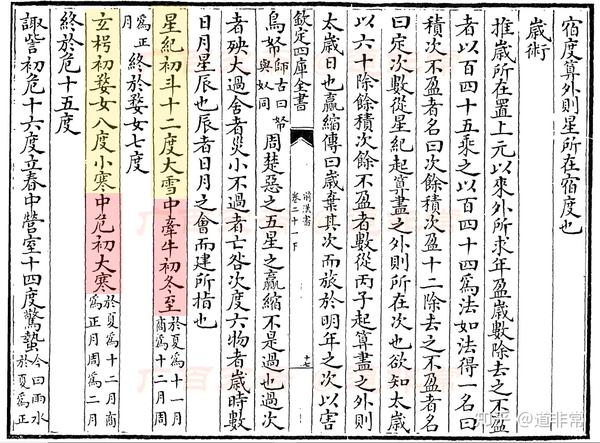 宿度算外則星所在宿度也
歲術
推歲所在置上元以來外所求年盈歲數除去之不盈
者以百四十五乘之以百四十四爲法如法得一名曰
積次不盈者名曰次餘積次盈十二除去之不盈者名
曰定次數從星紀起算盡之外則所在次也欲知太歲
以六十除餘積次餘不盈者數從丙子起算盡之外則
太歲日也贏縮傳曰歲棄其次而旅於明年之次以害
欽定四庫全書
前漢書
卷二十一下
十七
鳥帑師古曰帑與奴同周楚惡之五星之贏縮不是過也過次
者殃大過舍者災小不過者亡咎次度六物者歲時數
日月星辰也辰者日月之會而建所指也
星紀初斗十二度大雪中牽牛初冬至於夏爲十一月商爲十二月周
爲正月終於婺女七度
玄枵初婺女八度小寒中危初大寒於夏爲十二月商爲正月周爲二月
終於危十五度
諏訾初危十六度立春中營室十四度驚蟄今曰雨水於夏爲正
知乎 @道非常